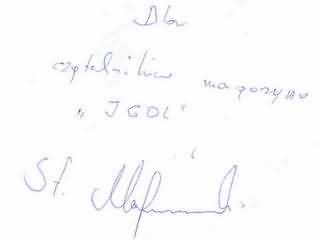 Dla
czytelników magazynu
„IGOL"
St.